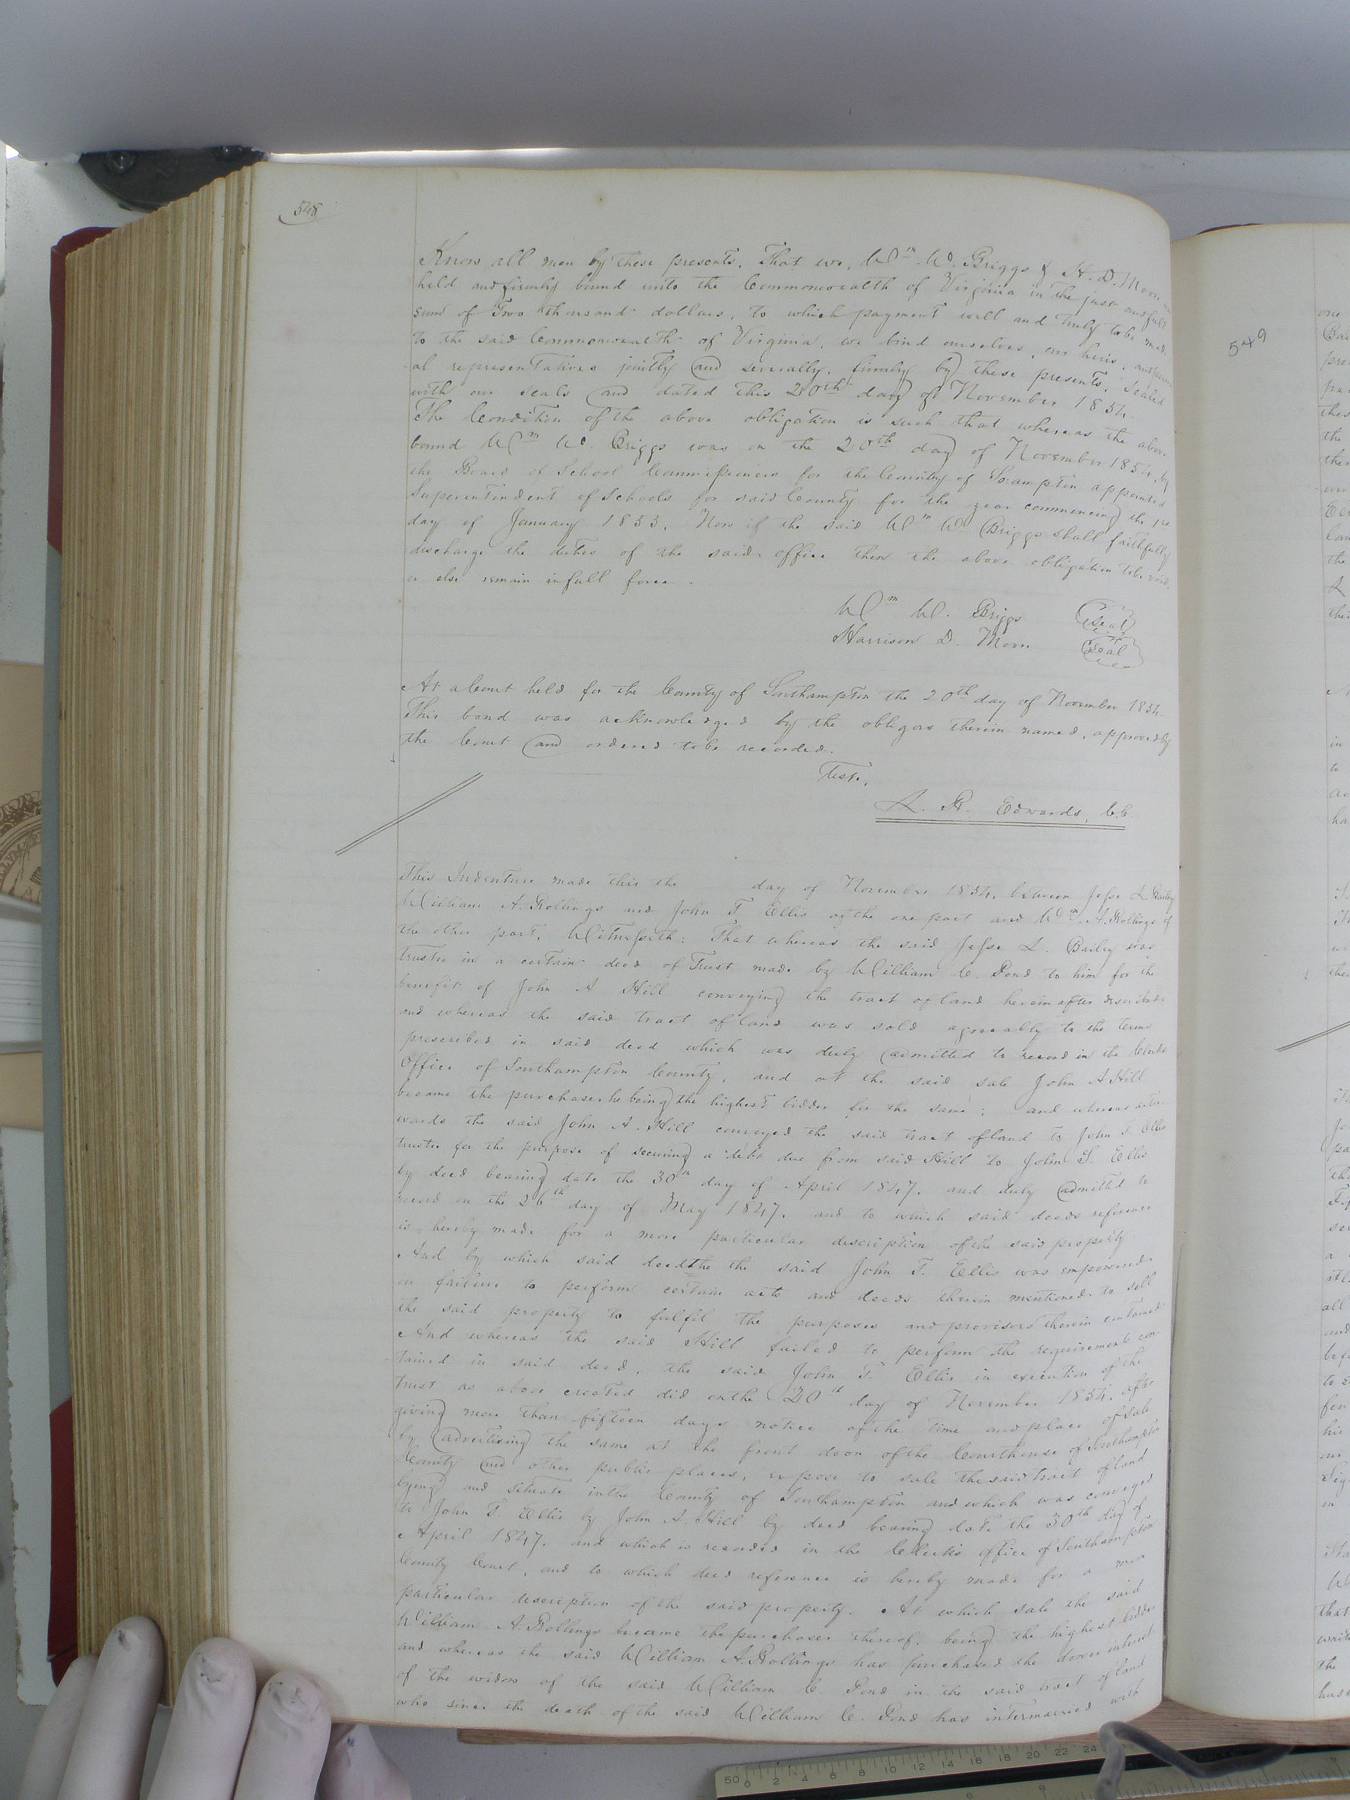 548
Know all men by these presents, That we, Wm. W. Briggs & H. D. Moon are
held and firmly bound unto the Commonwealth of Virginia in the just and full
sum of Two thousand dollars, to which payment well and truly to be made
to the said Commonwealth of Virginia, we bind ourselves, our heirs, and person
al representatives jointly and severally, firmly by these presents. Sealed
with our seals and dated this 20th day of November 1854.
The Condition of the above obligation is such that whereas the above
bound Wm. W. Briggs was on the 20th day of November 1854, by
the Board of School Commissioners for the County of Sohampton appointed
Superintendent of Schools for said County for the year commencing the 1st
day of January 1855. Now if the said Wm W. Briggs shall faithfully
discharge the duties of the said office then the above obligation to be void,
or else remain in full force.
Wm W. Briggs Seal
Harrison D. Moon Seal
At a Court held for the County of Southampton the 20th day of November 1854.
This bond was acknowledged by the obligors therein named, approved by
the Court and ordered to be recorded.
Test,
L. R. Edwards, C.C.
This Indenture made this the day of November 1854, between Jesse L Bailey
William A. Rollings and John T. Ellis of the one part and Wm. A. Rollings of
the other part, Witnesseth: That whereas the said Jesse L. Bailey was
trustee in a certain deed of Trust made by William C. Pond to him for the
benefit of John A Hill conveying the tract of land herein after described
and whereas the said tract of land was sold agreeably to the terms
prescribed in said deed which was duly admitted to record in the Clerks
Office of Southampton County, and at the said sale John A Hill
became the purchaser he being the highest bidder for the same; and whereas after-
wards the said John A. Hill conveyed the said tract of land to John T. Ellis
trustee for the purpose of securing a debt due from said Hill to John T. Ellis
by deed bearing date the 30th day of April 1847. and duly admitted to
record on the 26th day of May 1847. and to which said deeds reference
is hereby made for a more particular description of the said property
And by which said deed the the said John T. Ellis was empowered
on failure to perform certain acts and deeds therein mentioned to sell
the said property to fulfil the purposes and provisions therein contained
And whereas the said Hill failed to perform the requirements con-
tained in said deed, the said John T. Ellis in execution of the
trust as above created did on the 20th day of November 1854. after
giving more than fifteen days notice of the time and place of sale
by advertising the same at the front door of the Courthouse of Southampton
County and other public places, expose to sale the said tract of land
lying and situate in the County of Southampton and which was conveyed
to John T. Ellis by John A. Hill by deed bearing date the 30th day of
April 1847. and which is recorded in the Clerk's office of Southampton
County Court, and to which deed reference is hereby made for a more
particular description of the said property. At which sale the said
William A. Rollings became the purchaser thereof, being the highest bidder
and whereas the said William A. Rollings has purchased the dower interest
of the widow of the said William C. Pond in the said tract of land
who since the death of the said William C. Pond has intermarried with
549